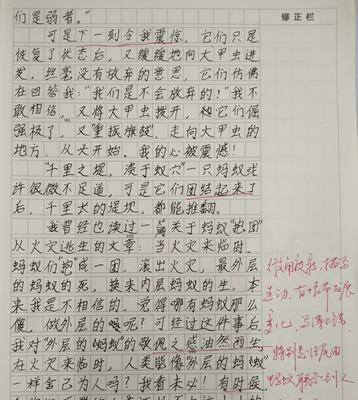 们是弱者。"
修正栏
可是下一刻令我震惊，它们只是
恢复了状态后，又缓缓地向大甲虫进
发，丝毫没有放弃的意思，它们仿佛
在回答我："我们是不会放弃的！"我不
敢相信，又将大甲虫拨开，但它们倔
强极了，又"重振旗鼓"，走向大甲虫的
地方，从头开始。我的心被震憾！
"千里之堤，溃于蚁穴"一只蚂蚁或
许很微不足道，可是它们团结起来了
后，千里大的堤坝，都能推翻。
我曾经也读过一篇关于蚂蚁"抱团"
从火灾逃生的文章：当火灾来临时，
蚂蚁们"抱"成一团，滚出火灾，最外层
的蚂蚁的死，换来内层蚂蚁的生。本
来我是不相信的，觉得哪有蚂蚁那么
傻，做外层的呢？可经过这件事后，
我对"外层的蚂蚁"的敬佩之感油然而生，
在火灾来临时，人类能像"外层的蚂蚁
一样舍己为人吗？我看未必！有时侯
生动，
特别是结尾由
蚂蚁联系到人